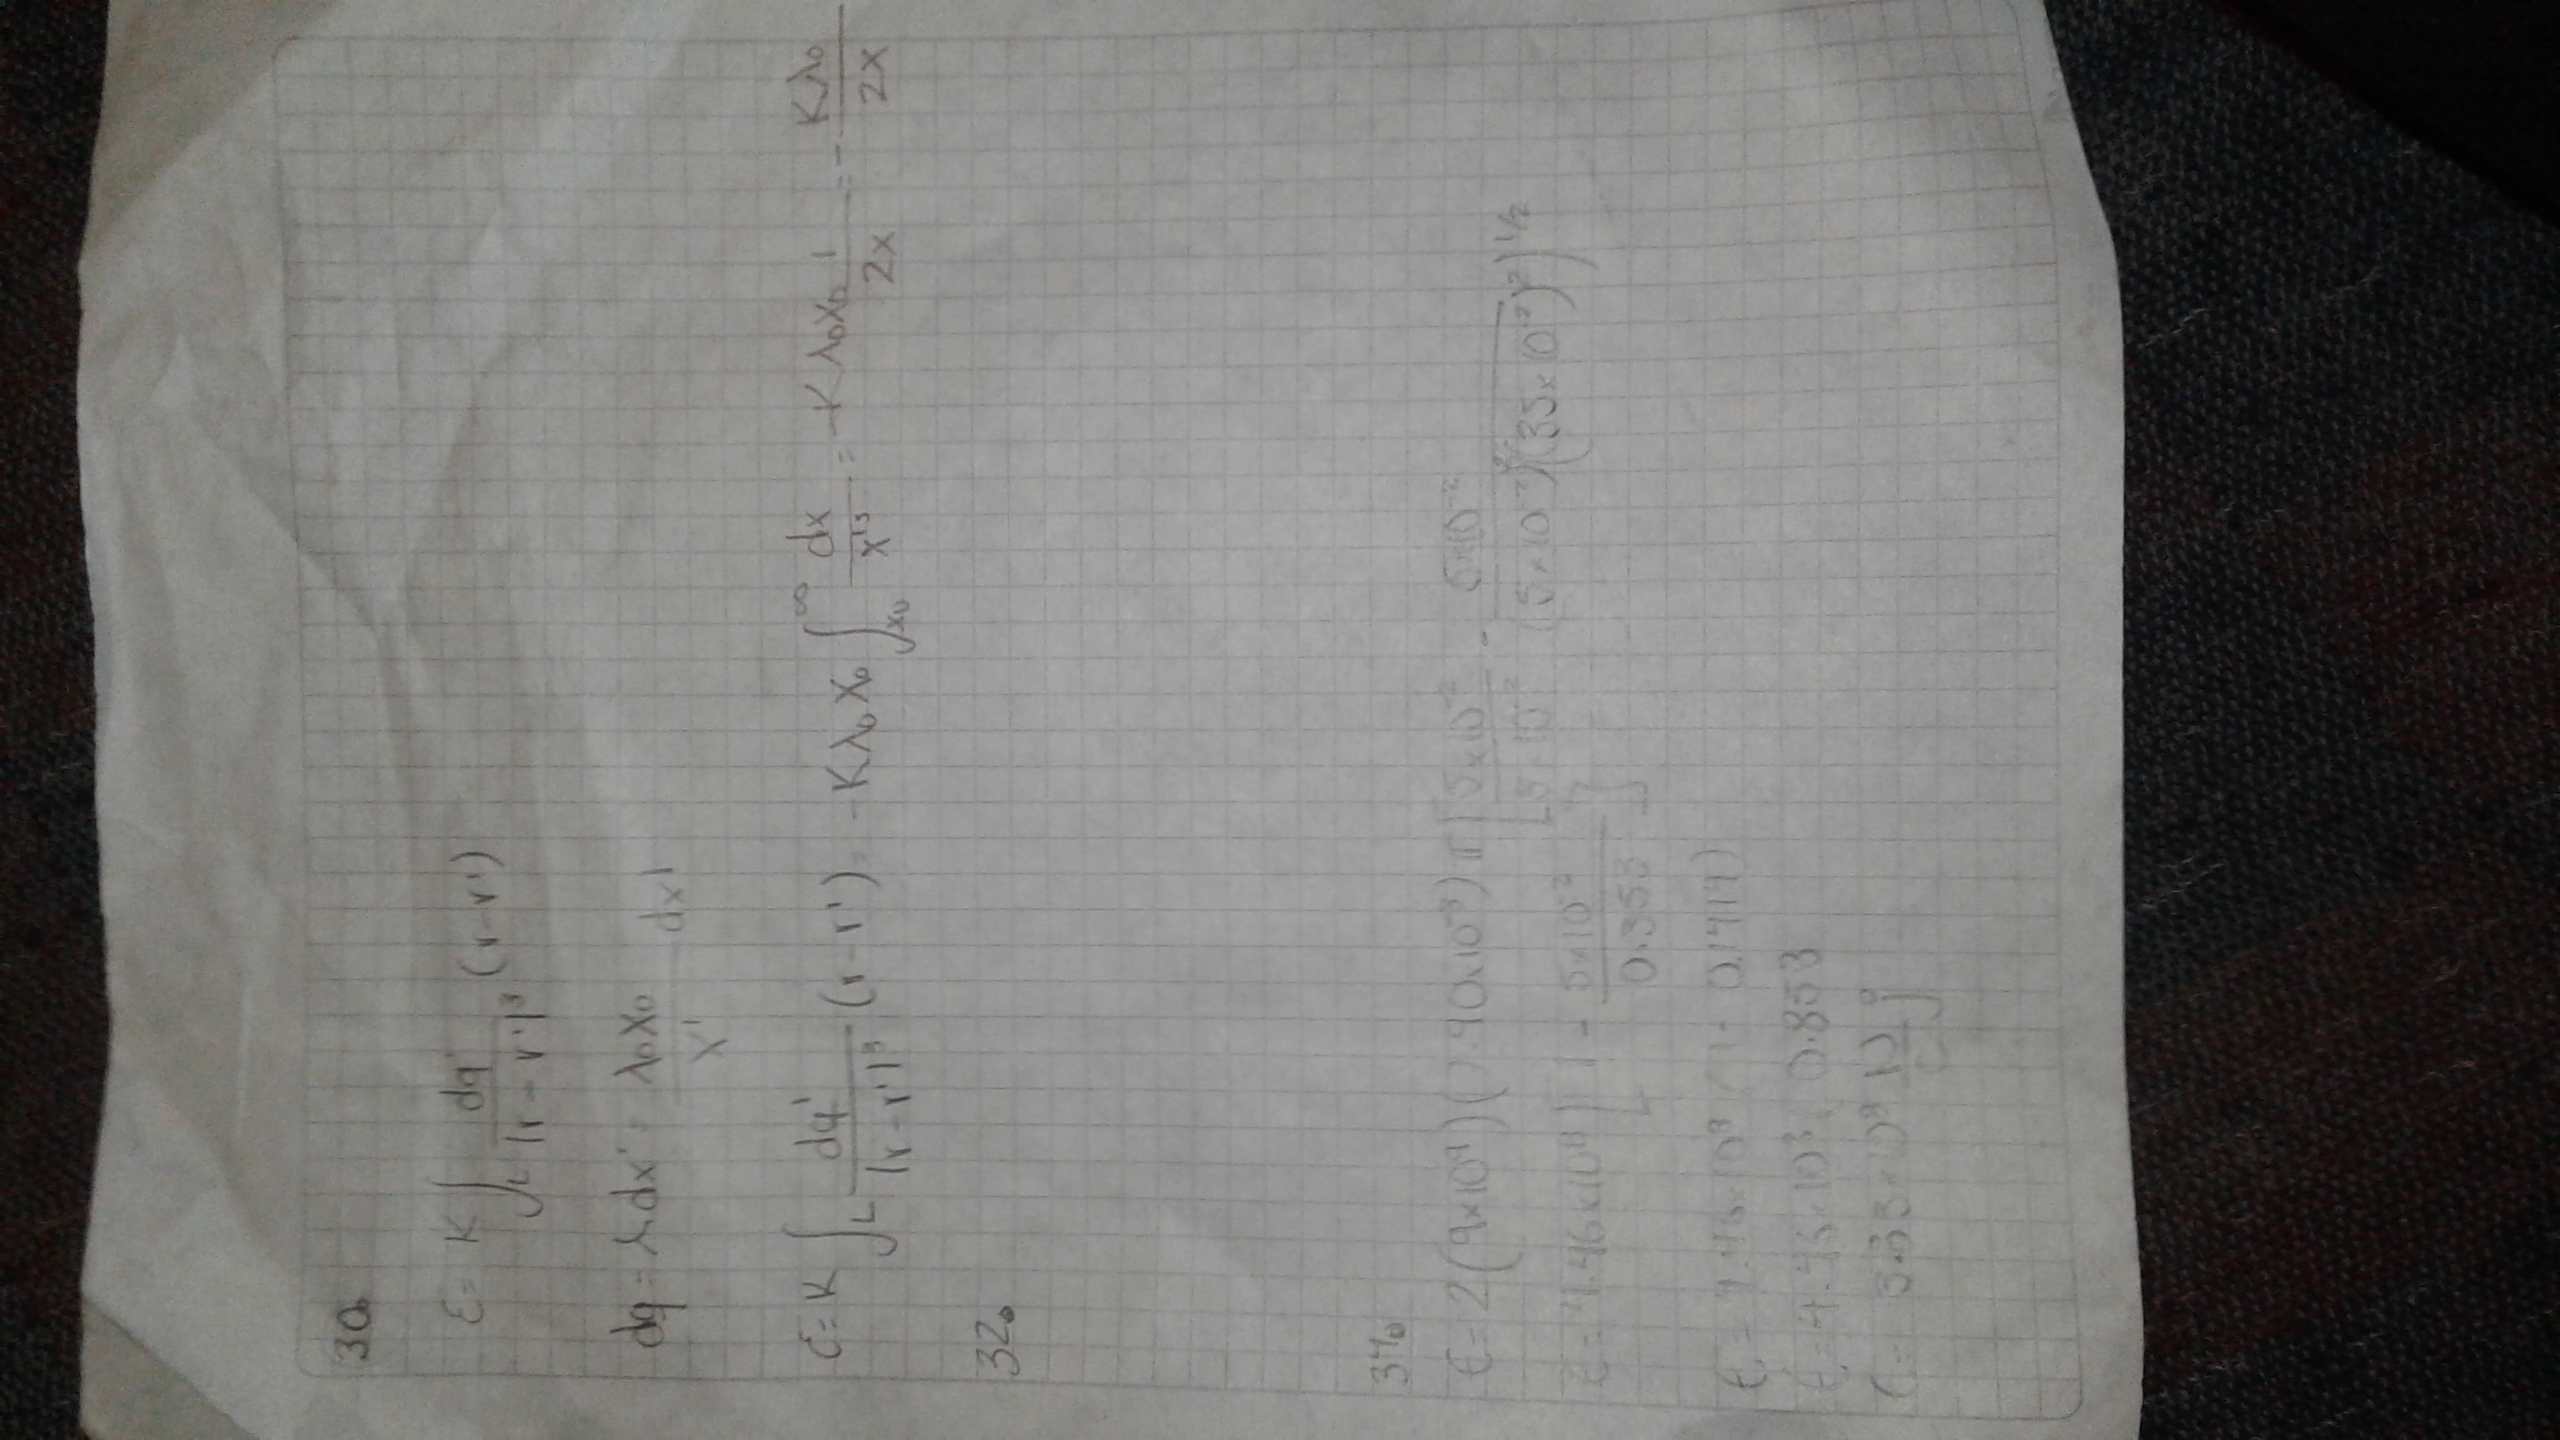 30.
E = K ∫_L dq' / |r - r'|³ (r - r')
dq = λ dx' = λ₀x₀ / x' dx'
E = K ∫_L dq' / |r - r'|³ (r - r') = -Kλ₀x₀ ∫_x₀^∞ dx / x'³ = -Kλ₀x₀ 1 / 2x = - Kλ₀ / 2x
32.
34.
E = 2(9x10⁹)( .90x10⁻³) π [ 5x10⁻² / 5x10⁻² - 5x10⁻² / (5x10⁻²)²(35x10⁻²)²)^1/2
E = 4.46x10⁸ [ 1 - 5x10⁻² / 0.353 ]
E = 4.46x10⁸ (1 - 0.1414)
E = 4. x10 ( 0.853
E = 3.83x10⁸ N / C j